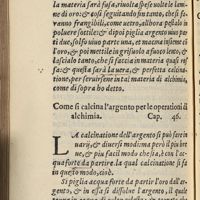 la materia sarà fusa, riuolta spesse uolte le lame
ne di oro: & cosi seguitando sin tanto, che si fa-
ranno frangibili, come uetro, allhora pestalo in
poluere sottile: & dipoi piglia argento uiuo par
ti due, solfo uiuo parte una, et macina insieme cō
l'oro, & poi mettile in grisuolo a fuoco lento, &
lascialo tanto, che si faccia in materia quasi ros-
sa: & questa sarà la uera, & perfetta calcina-
tione, per seruirtene in altre materie di alchimia,
come di sopra ho detto.
Come si calcina l'argento per le operationi di
alchimia. Cap. 46.
LA calcinatione dell'argento si può fare in
uarij, & diuersi modi ma però il piu bre
ue, & piu facil modo che sia, è con l'ac-
qua forte da partire. la qual calcinatione si fa
in questo modo, cioè.
Si piglia acqua forte da partir l'oro dall'ar-
gento, & in essa si dissolue l'argento, il qual